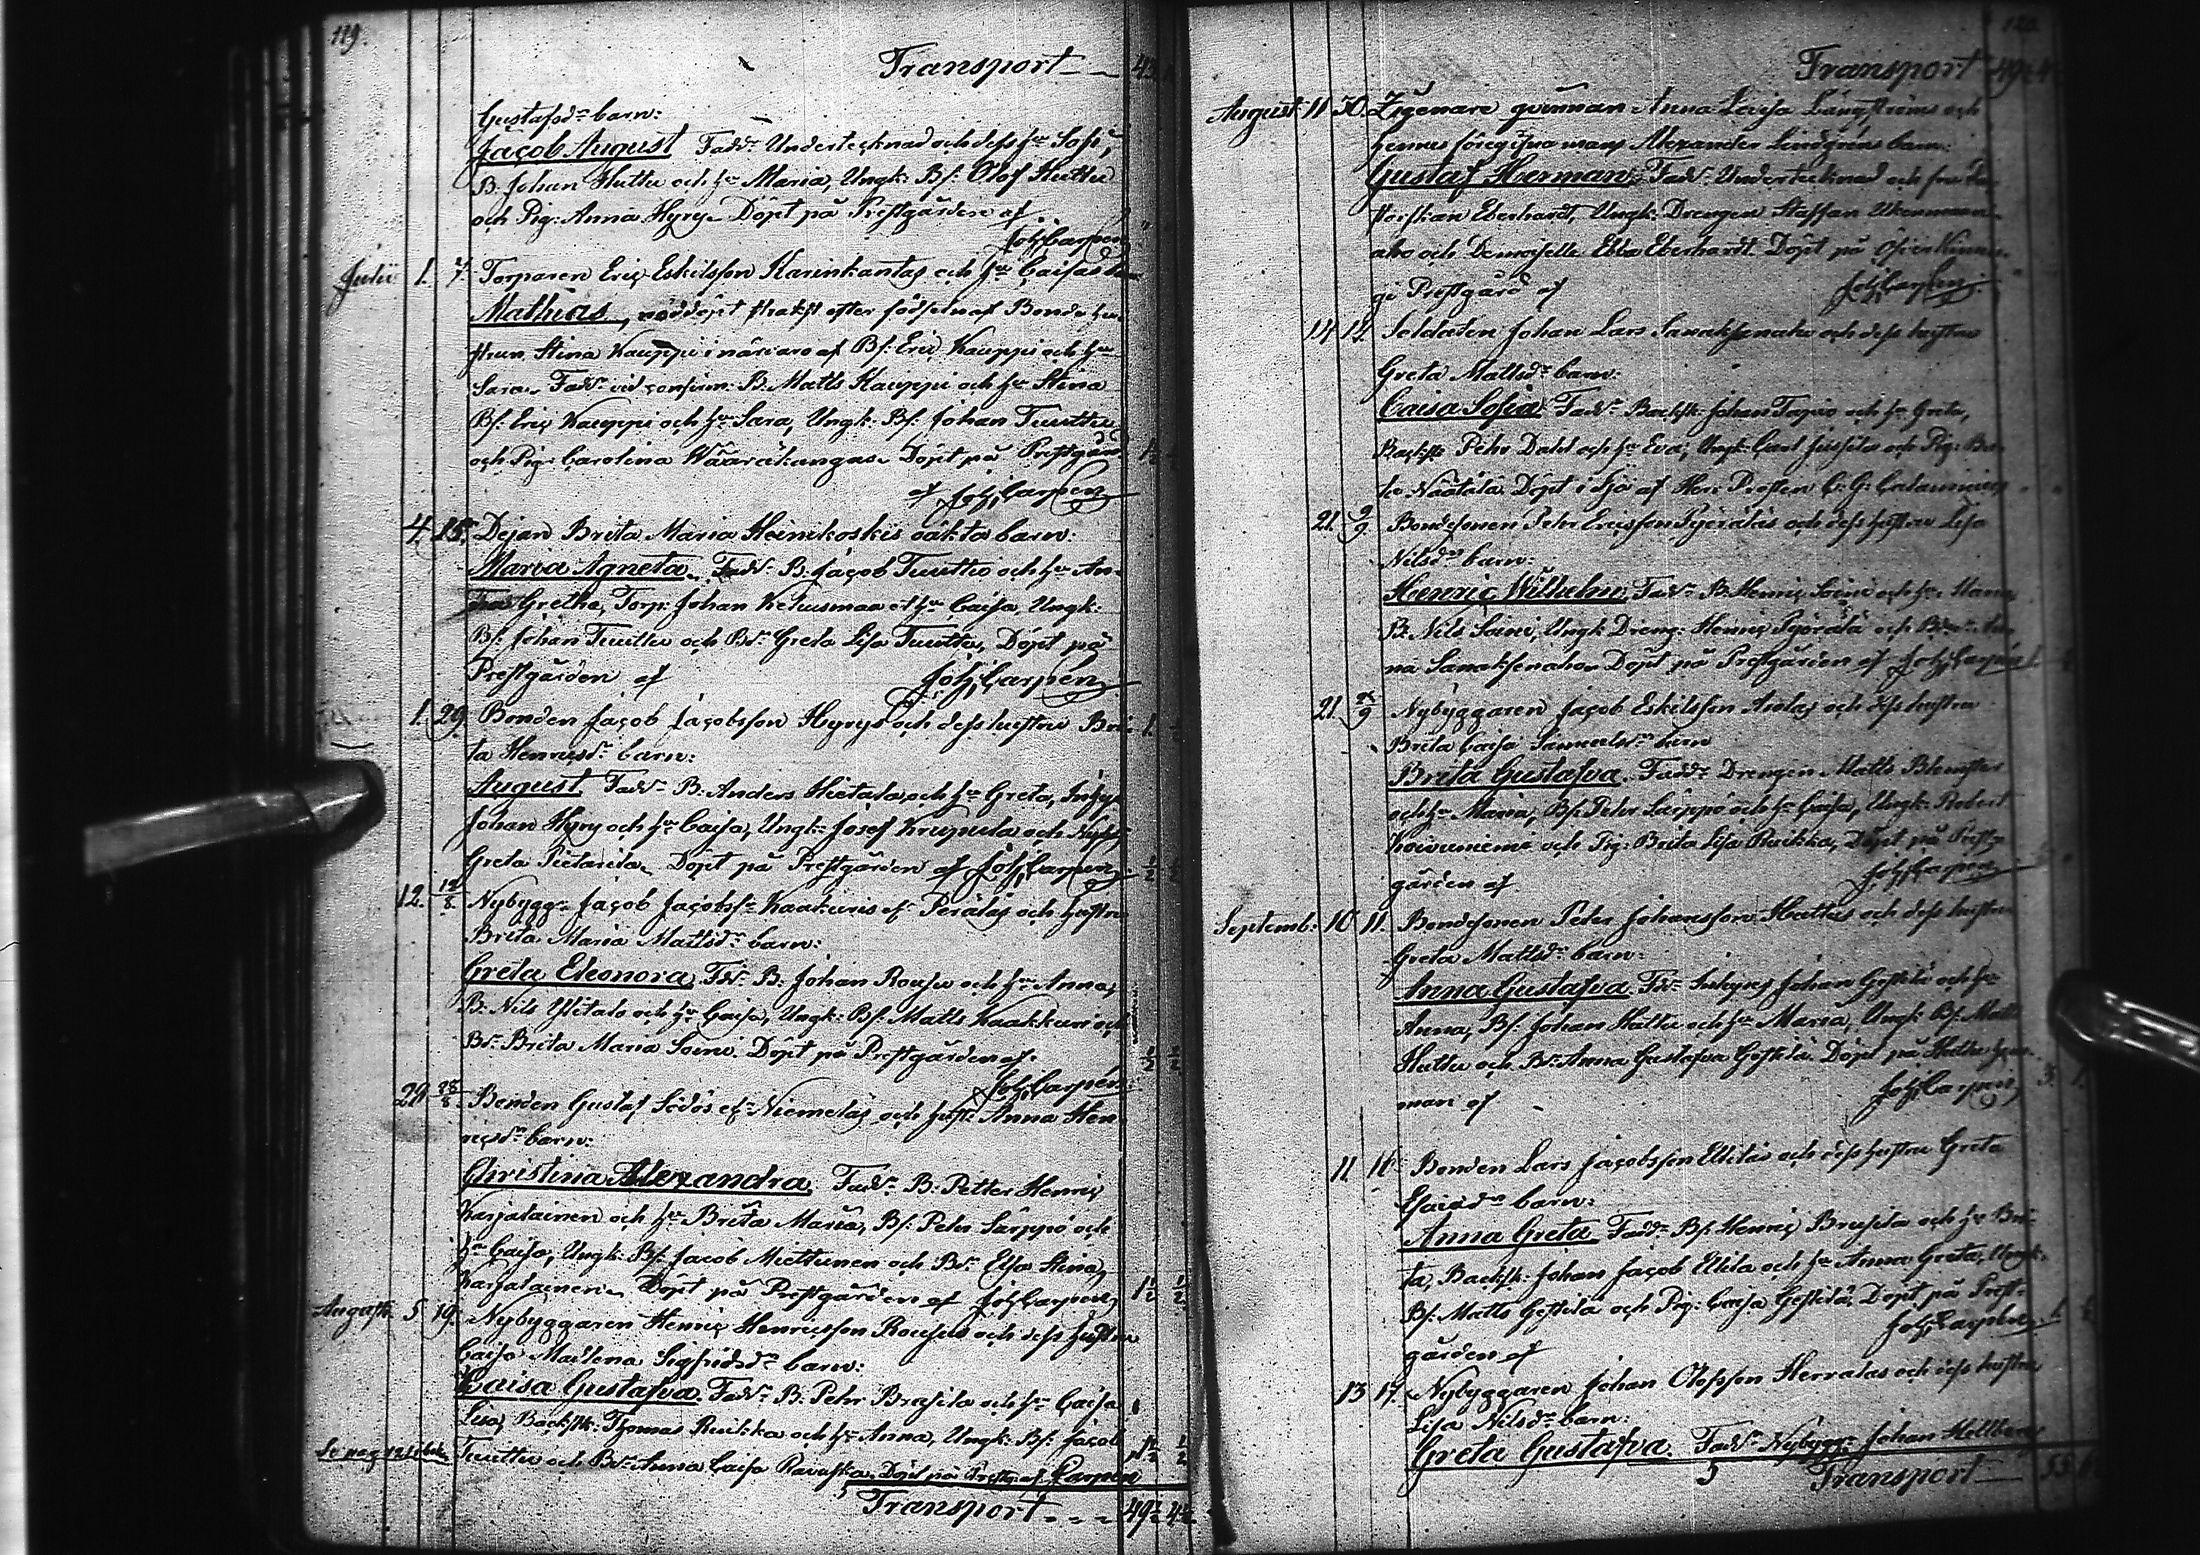 119.
Transport 43
Gustafsdr barn:
Jacob August Faddr Undertecknad och dess hu Sofi,
B. Johan Huttu och hu Maria, Ungk: Bs: Olof Huttu
och Pig: Anna Hyry. Döpt på Prestgården af
Joh. Carpen
Julii 1. 7. Torparen Eric Eskilsson Karinkantas och hu Caisas
Mathias, nöddöpt strakst efter födseln af Bonde hu-
strun Stina Kauppi i närvaro af Bs: Eric Kauppi och hu
Sara. Faddr vid confirm: B. Matts Kauppi och hu Stina
Bs: Eric Kauppi och hu Sara, Ungk: Bs: Johan Tuuttu
och Pig: Carolina Wääräkangas. Döpt på Prestgård
af Joh. Carpen
4. 15. Dejan Brita Maria Heinikoskis oäkta barn:
Maria Agneta. Faddr B. Jacob Tuuttu och hu An-
Grethe, Torp: Johan Kehusmaa och hu Caisa, Ungk:
Bs: Johan Tuuttu och Bdr Greta Lisa Tuuttu, Döpt på
Prestgården af Joh. Carpen
1. 29. Bonden Jacob Jacobsson Hyrys och dess hustru Bri-
ta Henricsdr barn:
August Faddr B: Anders Hietala och hu Greta, Inhys
Johan Hyry och hu Caisa, Ungk: Josef Krupula och
Greta Pietarila. Döpt på Prestgården af Joh. Carpen
12. 12/8 Nybygg. Jacob Jacobss. Kaakuris et Perälas och hustru
Brita Maria Mattsdr barn:
Greta Eleonora, Fdr B. Johan Rousu och hu Anna,
B. Nils Ylitalo och hu Caisa, Ungk: Bs: Matts Kaakkuri och
Bdr Brita Maria Soini. Döpt på Prestgården af
Joh. Carpen
29 28/8 Bonden Gustaf Södös et Niemelas och hust: Anna Hen-
ricsdr barn:
Christina Alexandra. Faddr B. Petter Henric
Karjalainen och hu Brita Maria, Bs: Pehr Särppö och
hu Caisa, Ungk: Bs: Jacob Miettunen och Bdr Elsa Stina
Karjalainen. Döpt på Prestgården af Joh. Carpen 1½ ½
Augusti 5 19. Nybyggaren Henric Henricsson Rousus och dess hustru
Caisa Madlena Sigfridsdr barn:
Kaisa Gustafva. Faddr B. Pehr Brusila och hu Caisa
Lisa, Backstk. Thomas Ruikka och hu Anna, Ungk: Bs: Jacob
Se pag 121 Tuuttu och Bdr Anna Caisa Ravaska. Döpt på Prestg. af Carpen
Transport 49½ 4½
120.
Transport 49½ 4
August 11 30. Zigenare qvinnan Anna Caisa Långströms och
hennes föregifna mans Alexander Lindgréns barn:
Gustaf Herman. Faddr Undertecknad och fru
Eberhardt, Ungk: Drengen Staffan
aho och Demoiselle Ebba Eberhardt. Döpt på
Prestgård af Joh. Carpen
14 14. Soldaten Johan Lars Sanaksenaho och dess hustru
Greta Mattsdr barn:
Caisa Sofia. Faddr Backstk: Johan Tapio och hu Greta,
Backstk Pehr Dahl och hu Eva, Ungk: Carl Jussila och Pig: Bri-
ta Näätälä. Döpt i af Herr Presten C. G. Calamnius
21. 2/9. Bondesonen Pehr Ericsson Pyöräläs och dess hustru Lisa
Nilsdr barn:
Henric Wilhelm, Faddr B. Henric Soini och hu Maria
B. Nils Soini, Ungk Dreng. Henric Pyörälä och An-
na Sanaksenaho. Döpt på Prestgården af Joh. Carpen
21. /9 Nybyggaren Jacob Eskilsson Arolas och dess hustru
Brita Caisa Samuelsdr barn
Brita Gustafva. Faddr Drengen Matts Blomster
och hu Maria, Bs: Pehr Särppö och hu Caisa, Ungk: Robert
Koivuniemi och Pig: Brita Lisa Ruikka, Döpt på Prest-
gården af Joh. Carpen
Septemb: 10 11. Bondesonen Peter Johansson Huttus och dess hustru
Greta Mattsdr barn:
Anna Gustafva. Fdr Inhyses Johan Gestilä och hu
Anna, Bs: Johan Huttu och hu Maria, Ungk: Bs: Matts
Huttu och Bdr Anna Gustafva Gestilä. Döpt på Huttu hem-
man af Joh. Carpen 3. 1.
11 16 Bonden Lars Jacobsson Ellilas och dess hustru Greta
Esaiedr barn:
Anna Greta. Faddr Bs. Henric Brusila och hu Bri-
ta, Backstk: Johan Jacob Ellila och hu Anna Greta, Ungk:
Bs: Matts Gestila och Pig: Caisa Gestilä. Döpt på Prest-
gården af Joh. Carpen
13 17. Nybyggaren Johan Olofsson Herralas och dess hustru
Lisa Nilsdr barn:
Greta Gustafva. Faddr Nybygg. Johan Hellberg
Transport 53